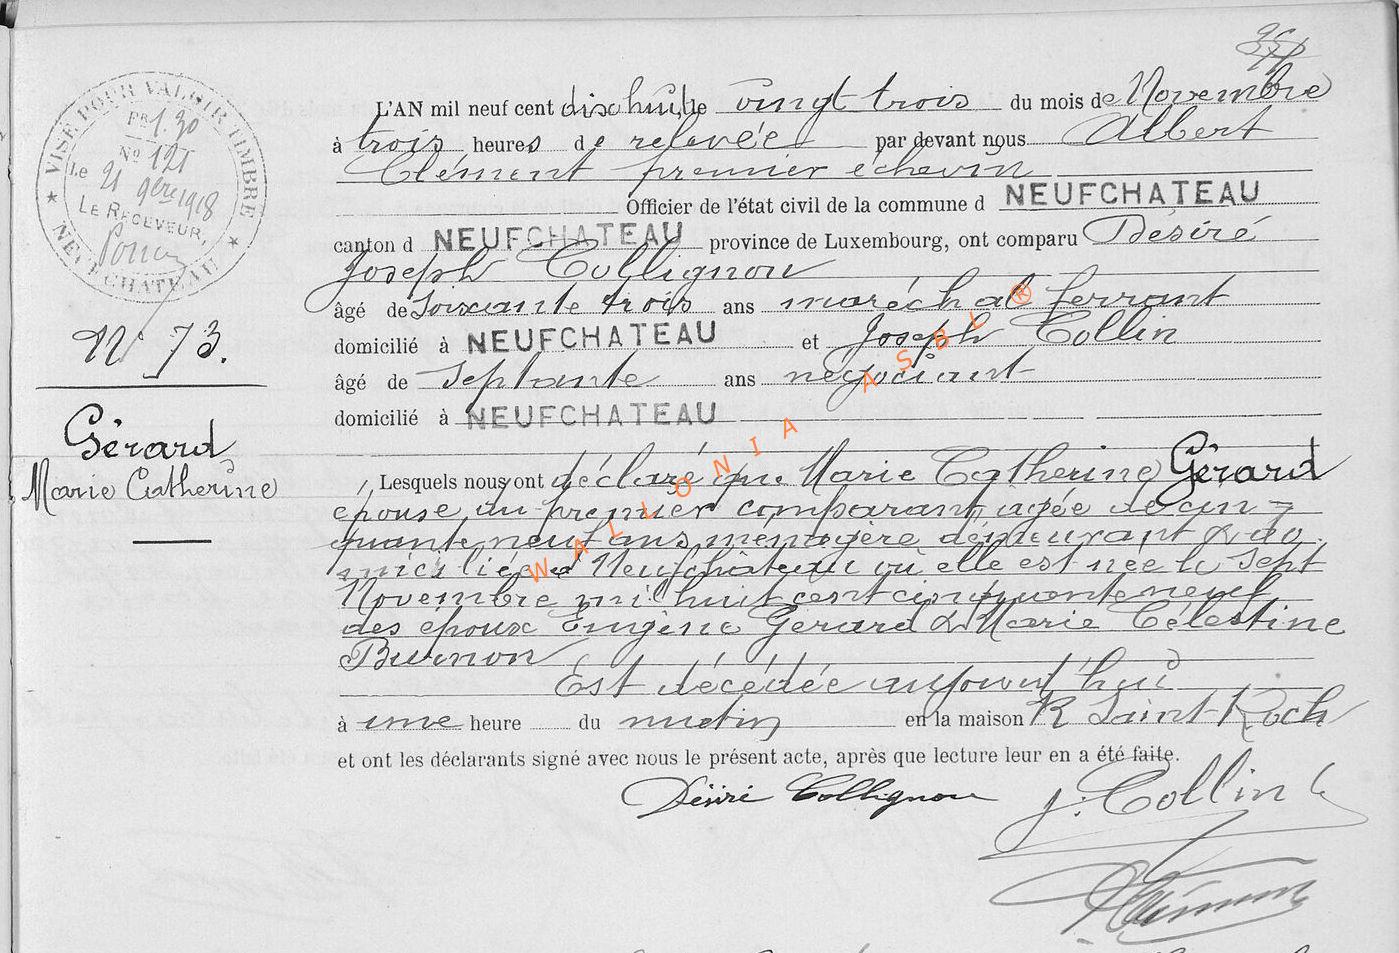 VISÉ POUR VALOIR TIMBRE
FR 1.30
No 121
Le 21 9bre 1918
LE RECEVEUR,
NEUFCHATEAU
N° 73.
Gérard
Marie Catherine
L'AN mil neuf cent dixhuit, le vingt trois du mois de Novembre
à trois heures de relevée par devant nous Albert
Clément premier échevin
Officier de l'état civil de la commune d NEUFCHATEAU
canton d NEUFCHATEAU province de Luxembourg, ont comparu Désiré
Joseph Collignon
âgé de soixante trois ans maréchal ferrant
domicilié à NEUFCHATEAU et Joseph Collin
âgé de septante ans négociant
domicilié à NEUFCHATEAU
Lesquels nous ont déclaré que Marie Catherine Gérard
épouse du premier comparant, agée de cin=
quante neuf ans, ménagère demeurant & do
miciliée à Neufchâteau où elle est née le sept
Novembre mil huit cent cinquante neuf
des époux Eugène Gérard & Marie Célestine
Burnon
Est décédée aujourd'hui
à une heure du matin en la maison R Saint-Roch
et ont les déclarants signé avec nous le présent acte, après que lecture leur en a été faite.
Désiré Collignon J. Collin
WALLONIA ASBL ®